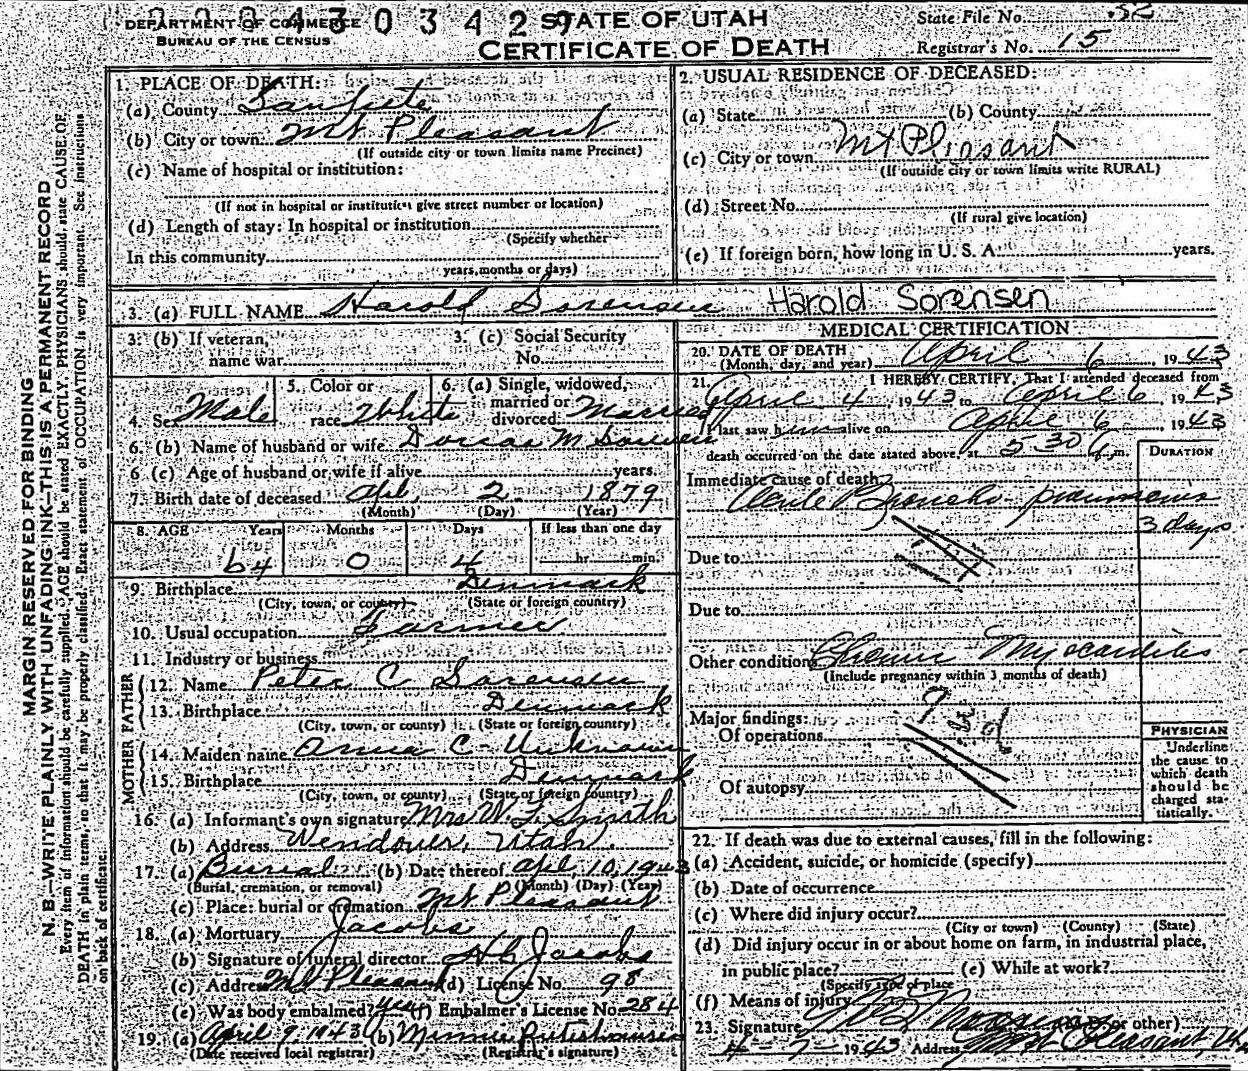 DEPARTMENT OF COMMERCE
BUREAU OF THE CENSUS
STATE OF UTAH
CERTIFICATE OF DEATH
State File No. 52
Registrar's No. 15
MARGIN RESERVED FOR BINDING
N. B.—WRITE PLAINLY WITH UNFADING INK—THIS IS A PERMANENT RECORD
Every item of information should be carefully supplied. AGE should be stated EXACTLY. PHYSICIANS should state CAUSE OF
DEATH in plain terms, so that it may be properly classified. Exact statement of OCCUPATION is very important. See instructions
on back of certificate.
1. PLACE OF DEATH:
(a) County Sanpete
(b) City or town Mt Pleasant
(If outside city or town limits name Precinct)
(c) Name of hospital or institution:
(If not in hospital or institution give street number or location)
(d) Length of stay: In hospital or institution
(Specify whether
In this community
years, months or days)
2. USUAL RESIDENCE OF DECEASED:
(a) State (b) County
(c) City or town Mt Pleasant
(If outside city or town limits write RURAL)
(d) Street No.
(If rural give location)
(e) If foreign born, how long in U. S. A. years.
3. (a) FULL NAME Harold Sorensen Harold Sorensen
3. (b) If veteran,
name war
3. (c) Social Security
No.
4. Sex Male
5. Color or
race White
6. (a) Single, widowed,
married or
divorced Married
6. (b) Name of husband or wife Dorcas M Sorensen
6 (c) Age of husband or wife if alive years.
7. Birth date of deceased Apl. 2 1879
(Month) (Day) (Year)
8. AGE Years Months Days If less than one day
64 0 4 hr. min.
9. Birthplace Denmark
(City, town, or county) (State or foreign country)
10. Usual occupation Farmer
11. Industry or business
FATHER
12. Name Peter C Sorensen
13. Birthplace Denmark
(City, town, or county) (State or foreign country)
MOTHER
14. Maiden name Anna C- Unknown
15. Birthplace Denmark
(City, town, or county) (State or foreign country)
16. (a) Informant's own signature Mrs W. F. Smith
(b) Address Wendover, Utah.
17. (a) Burial (b) Date thereof Apl. 10, 1943
(Burial, cremation, or removal) (Month) (Day) (Year)
(c) Place: burial or cremation Mt Pleasant
18. (a) Mortuary Jacobs
(b) Signature of funeral director H C Jacobs
(c) Address Mt Pleasant (d) License No. 98
(e) Was body embalmed? yes (f) Embalmer's License No. 284
19. (a) April 9, 1943 (b) Minnie
(Date received local registrar) (Registrar's signature)
MEDICAL CERTIFICATION
20. DATE OF DEATH
(Month, day, and year) April 6 1943
21. I HEREBY CERTIFY, That I attended deceased from
April 4 1943 to April 6 1943
I last saw him alive on April 6 1943
death occurred on the date stated above, at 5 30 m.
DURATION
Immediate cause of death
Acute Broncho-pneumonia
3 days
Due to
Due to
Other conditions Chronic Myocarditis
(Include pregnancy within 3 months of death)
Major findings:
Of operations
Of autopsy
PHYSICIAN
Underline
the cause to
which death
should be
charged sta-
tistically.
22. If death was due to external causes, fill in the following:
(a) Accident, suicide, or homicide (specify)
(b) Date of occurrence
(c) Where did injury occur?
(City or town) (County) (State)
(d) Did injury occur in or about home on farm, in industrial place,
in public place? (e) While at work?
(Specify type of place
(f) Means of injury
23. Signature (M.D. or other)
4-7-1943 Address Mt Pleasant,